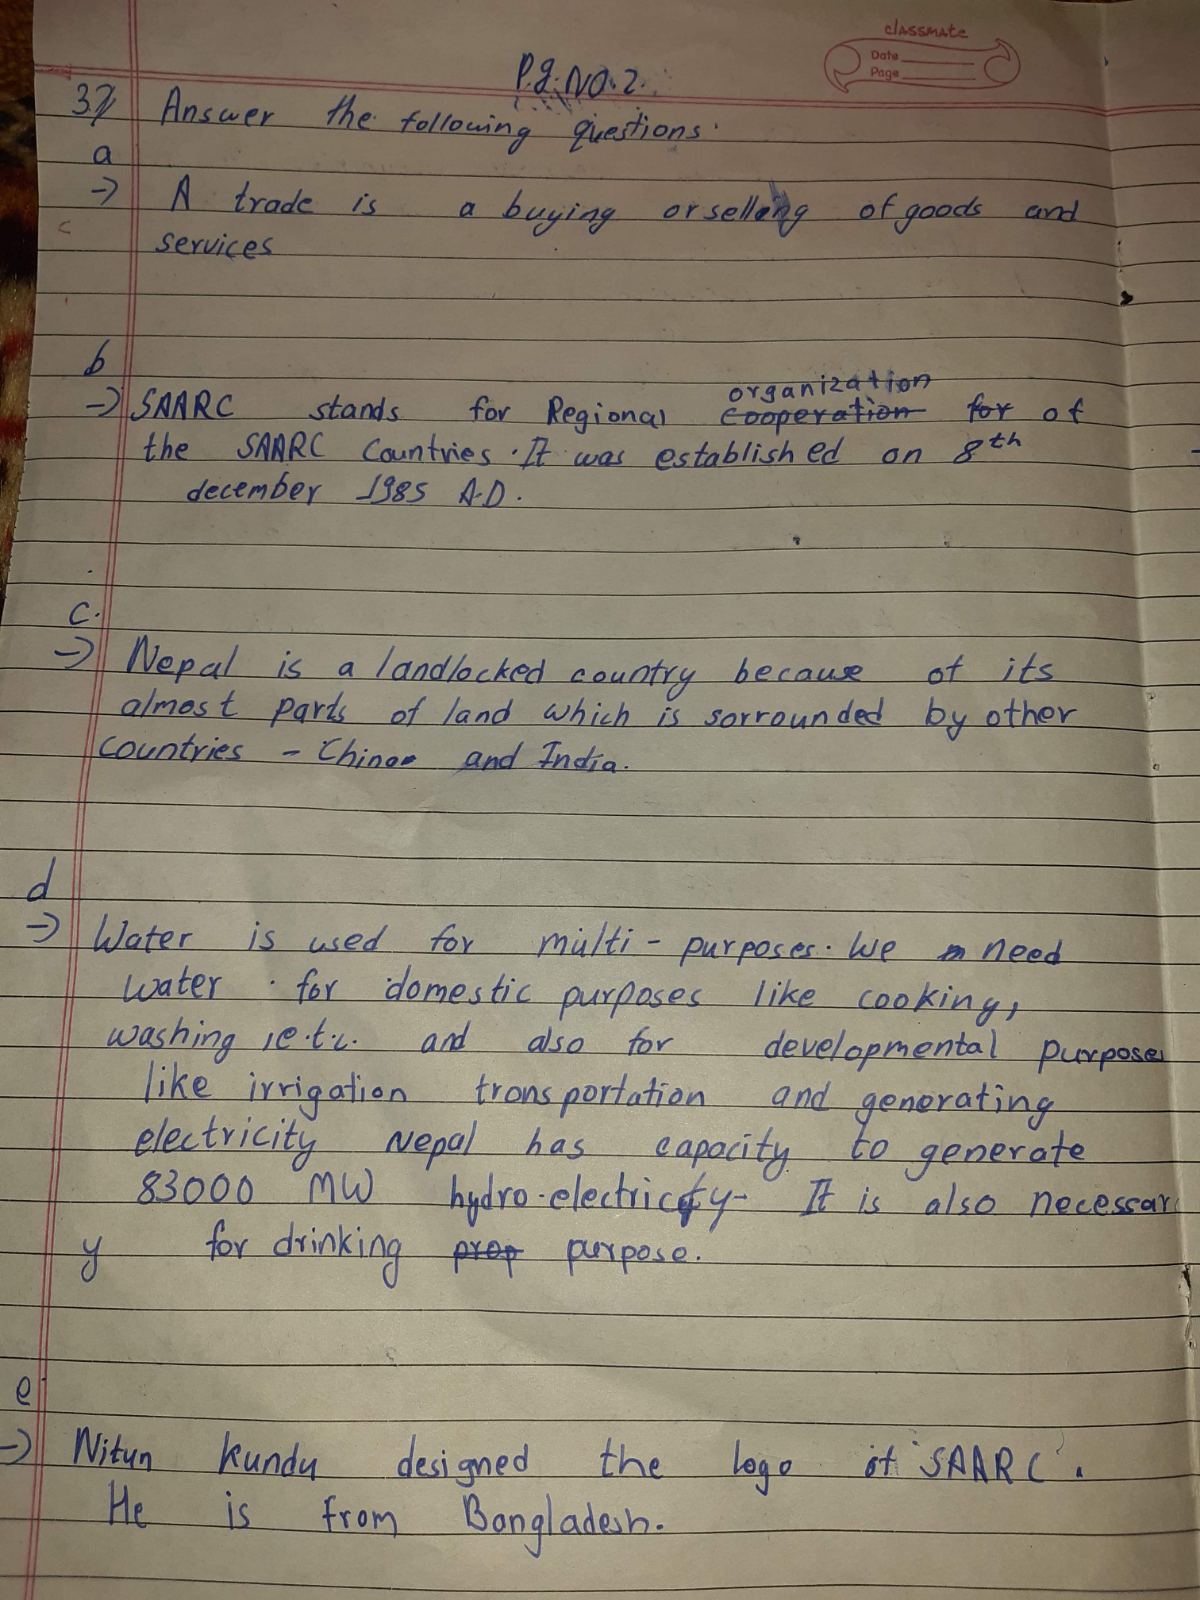 classmate
Date
Page
P.g.No.2.
3) Answer the following questions.
a
→ A trade is a buying or selling of goods and
services
b
→ SAARC stands for Regional organization cooperation for of
the SAARC Countries. It was established on 8th
december 1985 A.D.
c.
→ Nepal is a landlocked country because of its
almost parts of land which is sorrounded by other
countries - China and India.
d
→ Water is used for multi-purposes. We need
water for domestic purposes like cooking,
washing ,e.t.c. and also for developmental purposes
like irrigation transportation and generating
electricity Nepal has capacity to generate
83000 MW hydro-electricity- It is also necessar
y for drinking prop purpose.
e
→ Nitun kundu designed the logo of SAARC.
He is from Bangladesh.